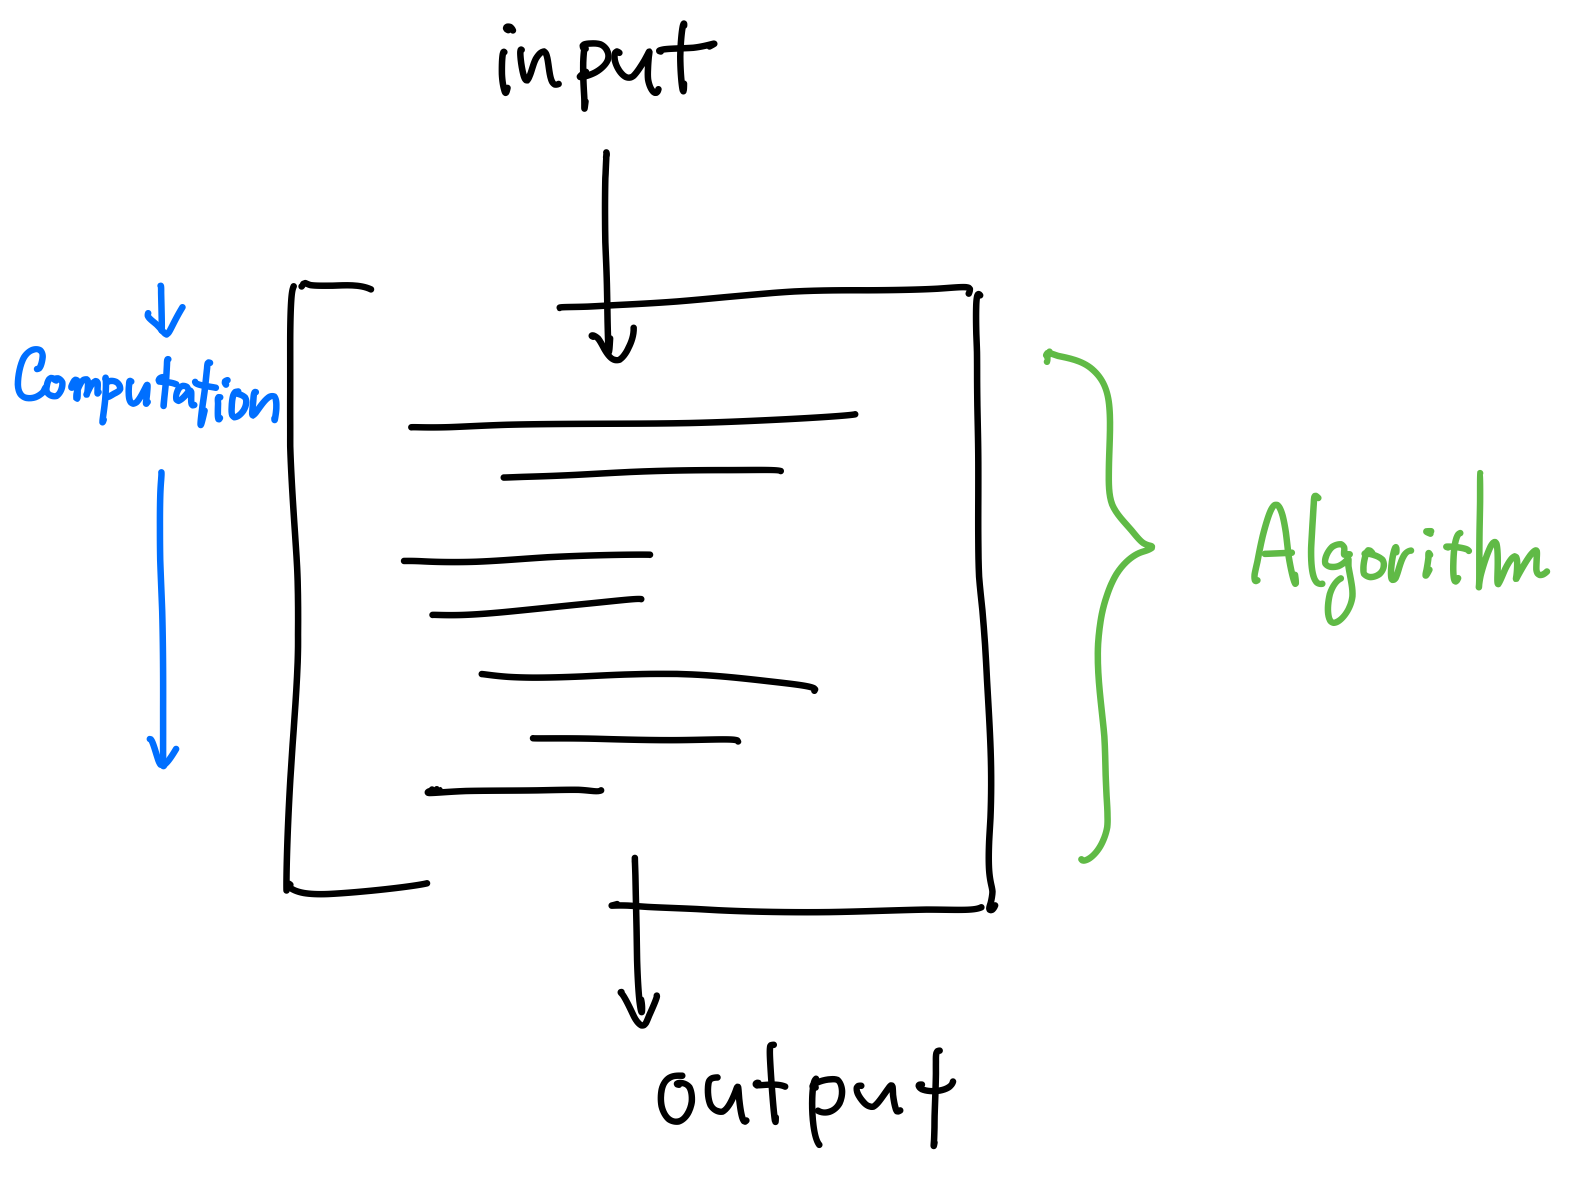 input
Computation
Algorithm
output